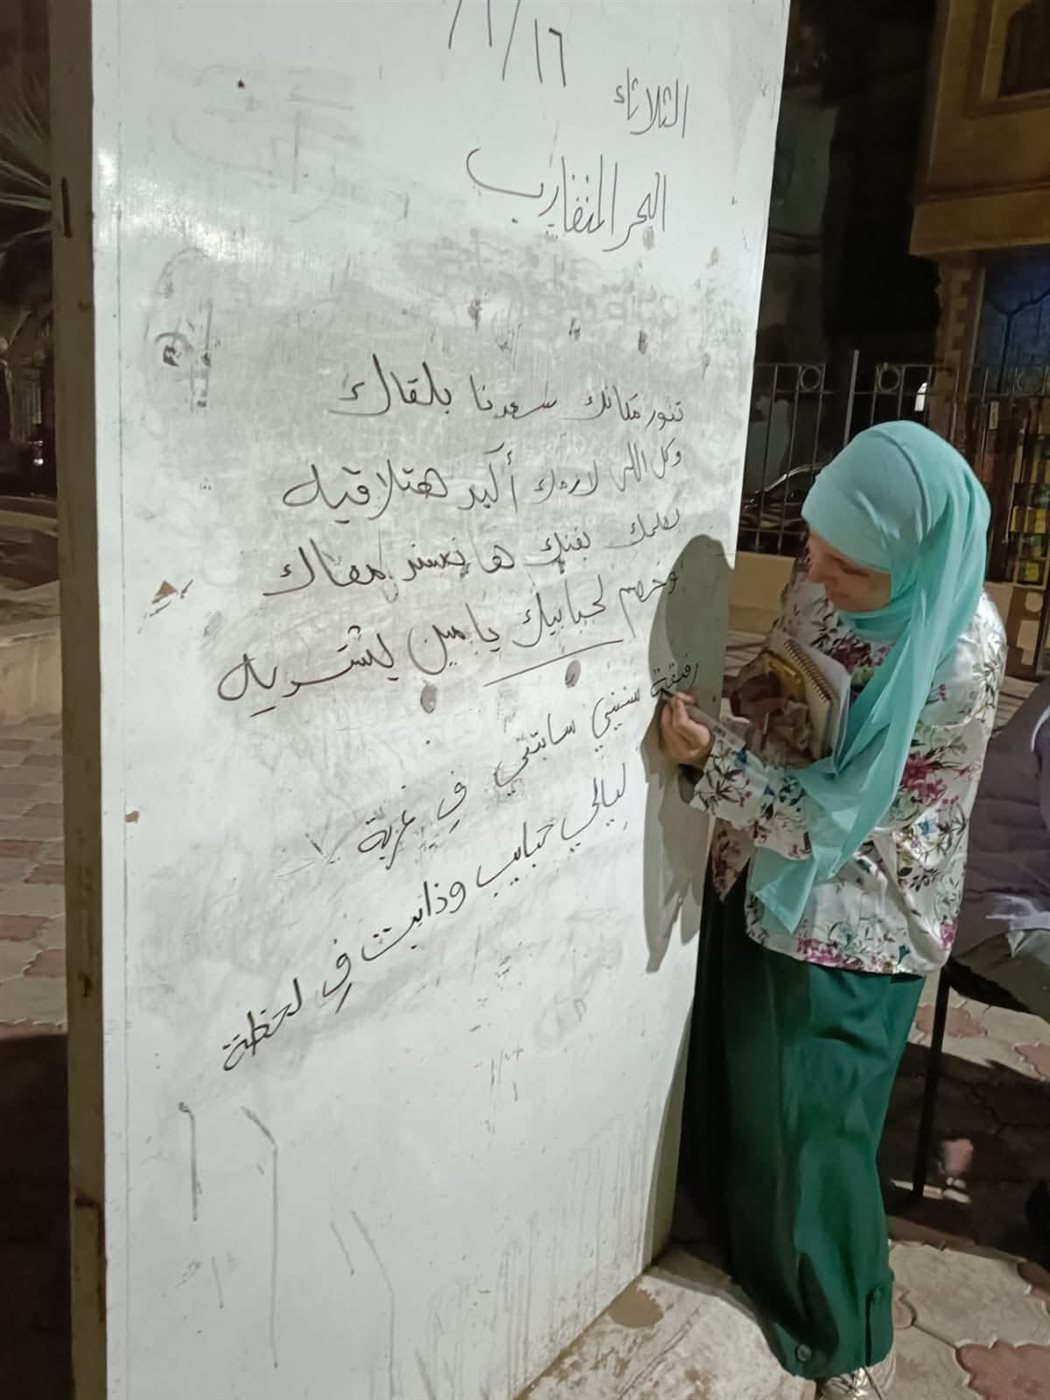 ١٦/٦/
الثلاثاء
البحر المتقارب
تنور مكانك سعدنا بلقاك
وكل اللى لازمك أكيد هتلاقيه
نعلمك بفنك هانعسر معاك
وخصم لحبايبك يا مين يشتريه
رفيقة سنيني سابتني في غربة
ليالي حبايب وذابت في لحظة